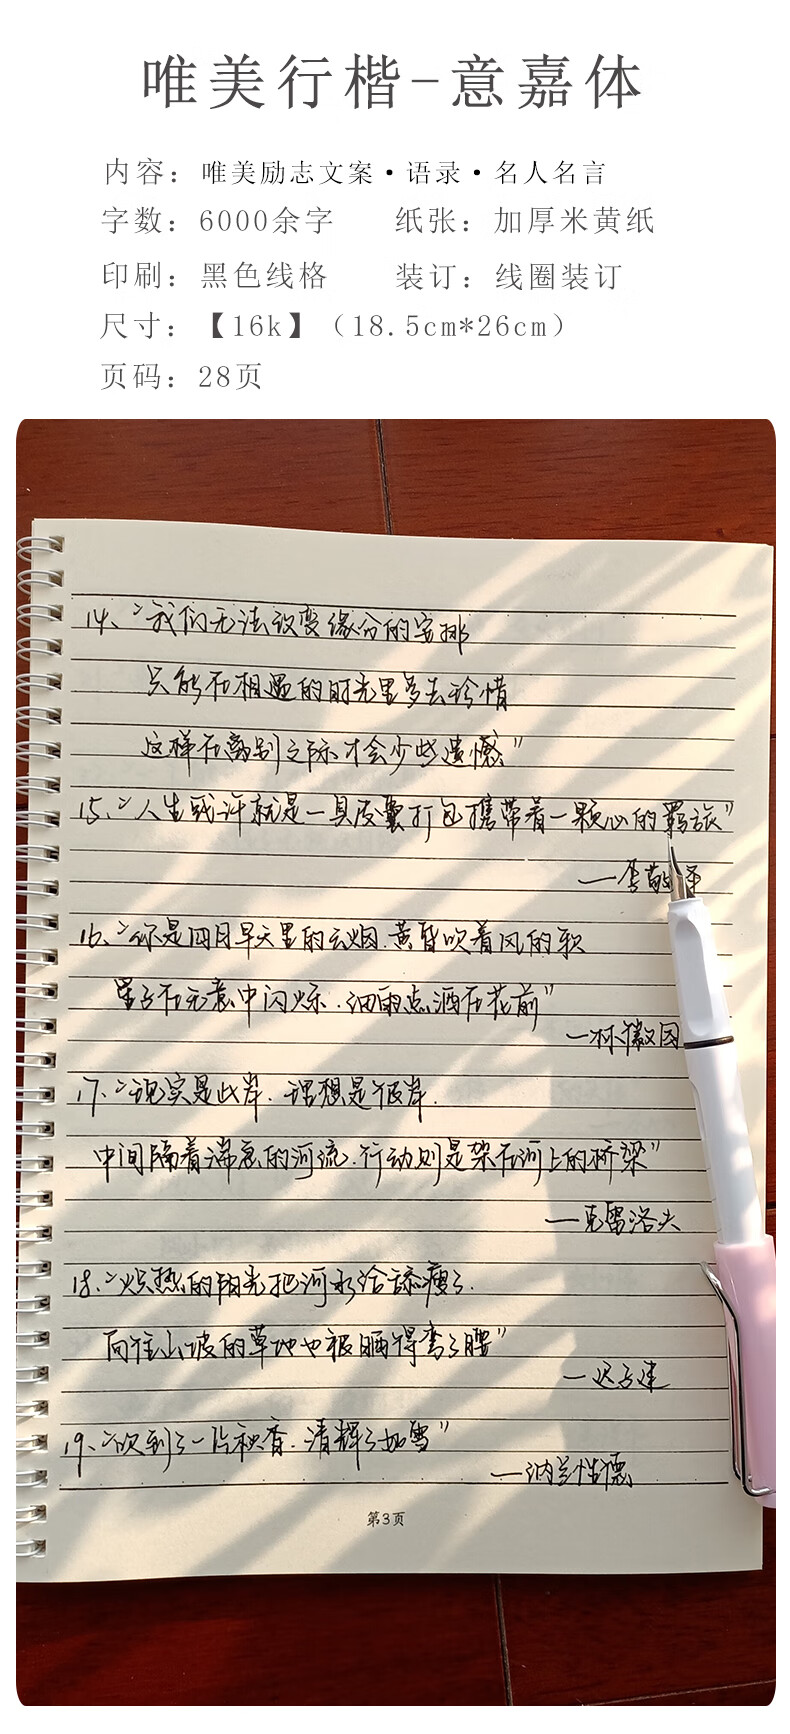 唯美行楷-意嘉体
内容：唯美励志文案·语录·名人名言
字数：6000余字 纸张：加厚米黄纸
印刷：黑色线格 装订：线圈装订
尺寸：【16k】（18.5cm*26cm）
页码：28页
14、“我们无法改变缘分的安排
只能在相遇的时光里多去珍惜
这样在离别之际才会少些遗憾”
15、“人生或许就是一具皮囊打包携带着一颗心的羁旅”
—李敬泽
16、“你是四月早天里的云烟.黄昏吹着风的软
星子在无意中闪烁.细雨点洒在花前”
—林徽因
17、“现实是此岸.理想是彼岸.
中间隔着湍急的河流.行动则是架在河上的桥梁”
—克雷洛夫
18、“火热的阳光把河水给舔瘦了.
向往山坡的草地也被晒得弯了腰”
—迟子建
19、“吹到了一片秋香.清辉了如雪”
—纳兰性德
第3页